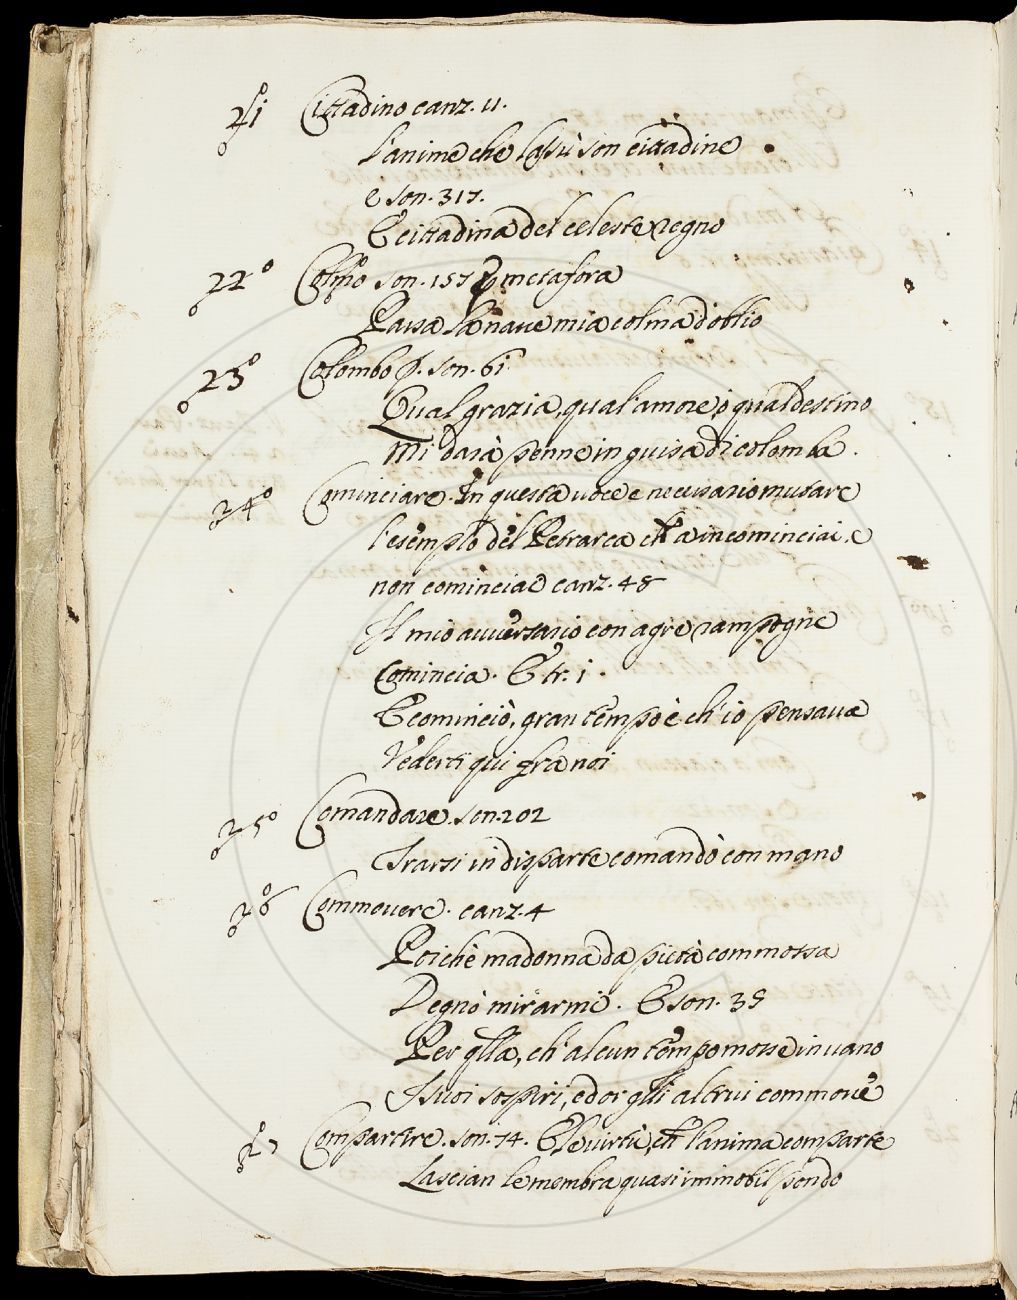 21º Cittadino canz. 11.
L'anime che lassù son cittadine
e son. 317.
E cittadina del celeste regno
22º Colmo son. 157 metafora
Passa la nave mia colma d'oblio
23º Colombo p. son. 61.
Qual grazia, qual'amore, o qual destino
Mi darà penne in guisa di colomba.
24º Cominciare. In questa voce è necessario mutare
l'esempio del Petrarca ch'a incominciai, e
non comincia e canz. 48
Il mio avversario con agre rampogne
Comincia. E tr. 1.
E cominciò, gran tempo è ch'io pensava
Vederti qui fra noi
25º Comandare. son. 202
Trarsi in disparte comandò con mano
26º Commovere. canz. 4
Poiche madonna da pietà commossa
Degnò mirarmi. E son. 39
Per qlla, ch'alcun tempo mosse in vano
I suoi sospiri, ed or qlli altrui commove
27 Compartire. son. 74. E le virtù, ch l'anima comparte
Lascian le membra quasi immobil pondo